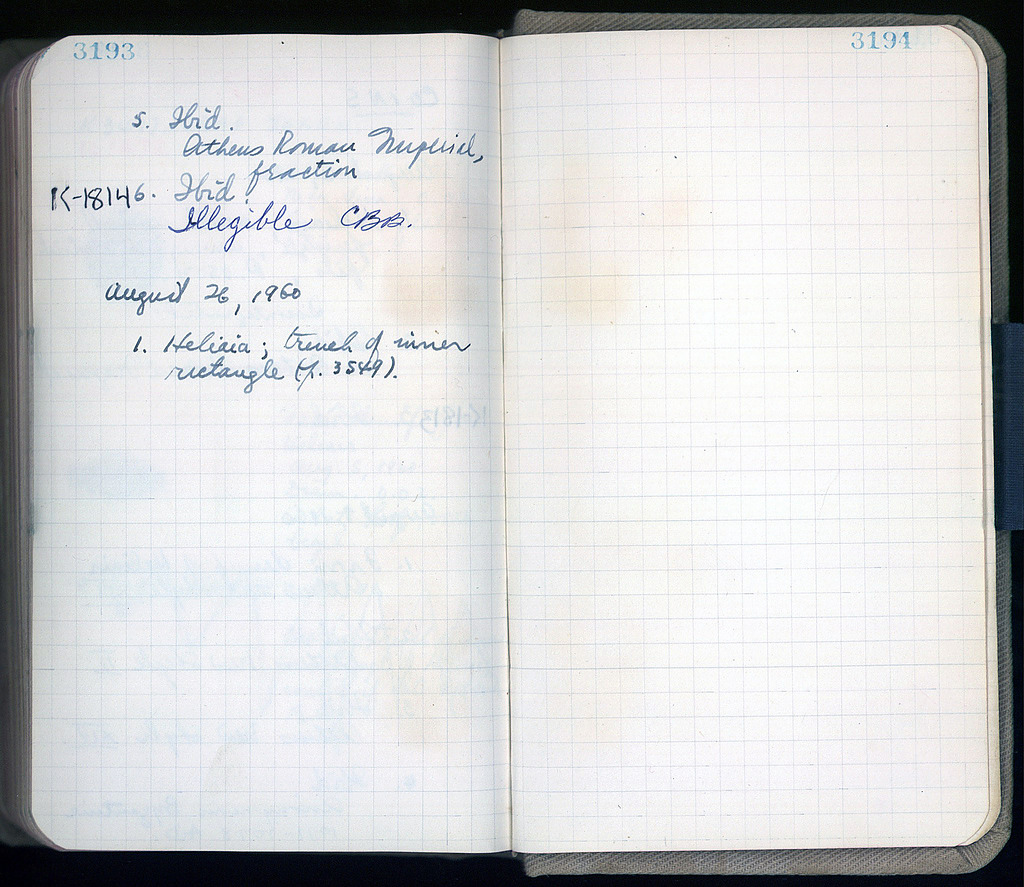 3193
5. Ibid.
Athens Roman Imperial,
fraction
K-1814 6. Ibid.
Illegible
August 26, 1960
1. Heliaia; trench of inner
rectangle (p. 3549).
3194